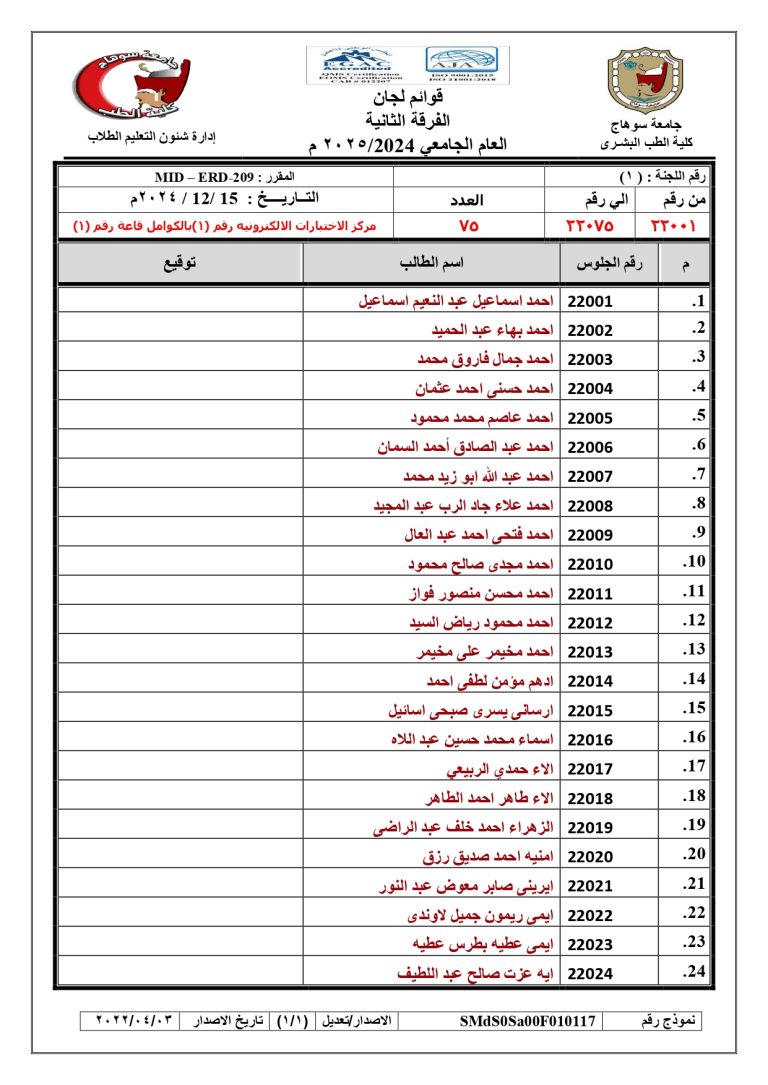 جامعة سوهاج
كلية الطب
إدارة شئون التعليم الطلاب
EGAC
Accredited
QMS Certification
EOMS Certification
CAB # 012207
AJA
ISO 9001:2015
ISO 21001:2018
قوائم لجان
الفرقة الثانية
العام الجامعي 2024/٢٠٢٥ م
جامعة سوهاج
كلية الطب البشرى
رقم اللجنة : ( ١ ) المقرر : MID – ERD-209
من رقم الي رقم العدد التــاريـــخ : 15 /12 / ٢٠٢٤م
٢٢٠٠١ ٢٢٠٧٥ ٧٥ مركز الاختبارات الالكترونيه رقم (١)بالكوامل قاعة رقم (١)
م رقم الجلوس اسم الطالب توقيع
1. 22001 احمد اسماعيل عبد النعيم اسماعيل
2. 22002 احمد بهاء عبد الحميد
3. 22003 احمد جمال فاروق محمد
4. 22004 احمد حسنى احمد عثمان
5. 22005 احمد عاصم محمد محمود
6. 22006 احمد عبد الصادق أحمد السمان
7. 22007 احمد عبد الله ابو زيد محمد
8. 22008 احمد علاء جاد الرب عبد المجيد
9. 22009 احمد فتحى احمد عبد العال
10. 22010 احمد مجدى صالح محمود
11. 22011 احمد محسن منصور فواز
12. 22012 احمد محمود رياض السيد
13. 22013 احمد مخيمر على مخيمر
14. 22014 ادهم مؤمن لطفى احمد
15. 22015 ارسانى يسرى صبحى اسانيل
16. 22016 اسماء محمد حسين عبد اللاه
17. 22017 الاء حمدي الربيعي
18. 22018 الاء طاهر احمد الطاهر
19. 22019 الزهراء احمد خلف عبد الراضى
20. 22020 امنيه احمد صديق رزق
21. 22021 ايرينى صابر معوض عبد النور
22. 22022 ايمى ريمون جميل لاوندى
23. 22023 ايمى عطيه بطرس عطيه
24. 22024 ايه عزت صالح عبد اللطيف
نموذج رقم SMdS0Sa00F010117 الاصدار/تعديل (١/١) تاريخ الاصدار ٢٠٢٢/٠٤/٠٣